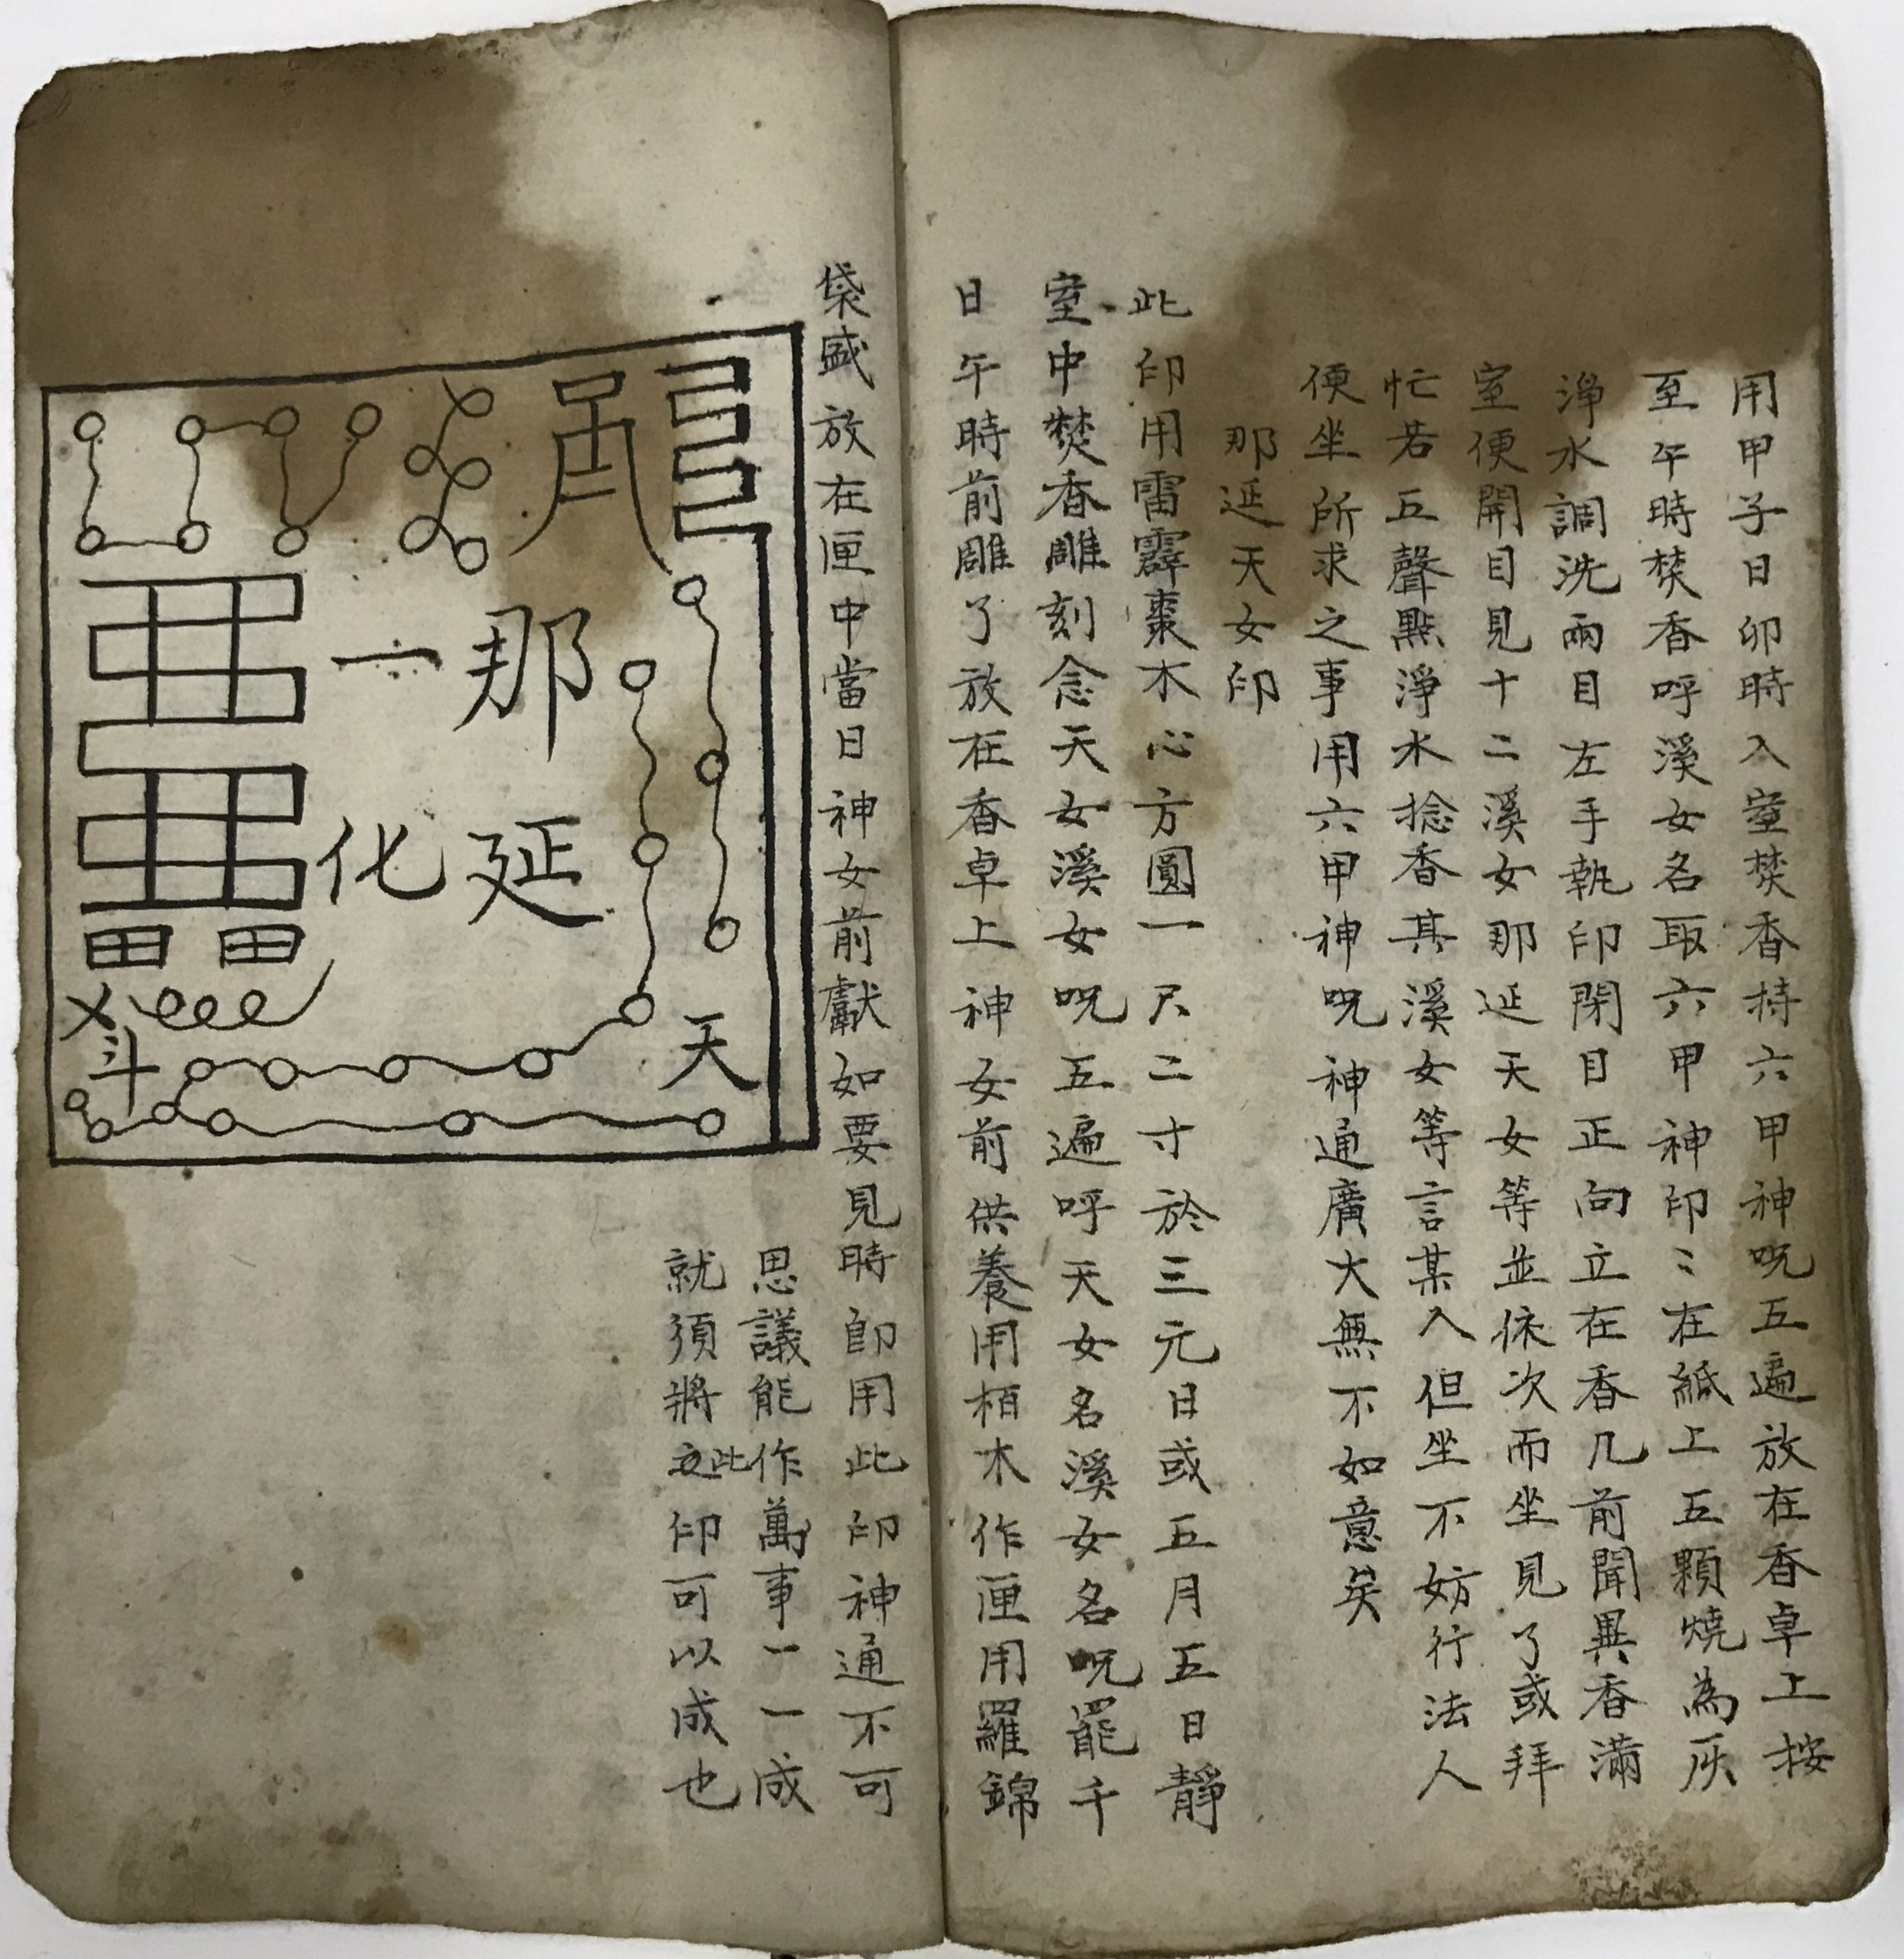 用甲子日卯時入室焚香持六甲神呪五遍放在香卓上按
至午時焚香呼溪女名取六甲神印〻在紙上五顆燒為灰
淨水調洗兩目左手執印閉目正向立在香几前聞異香滿
室便開目見十二溪女那延天女等並依次而坐見了或拜
忙若五聲點淨水捻香其溪女等言某入但坐不妨行法人
便坐所求之事用六甲神呪神通廣大無不如意矣
那延天女印
此印用雷霹棗木心方圓一尺二寸於三元日或五月五日靜
室中焚香雕刻念天女溪女呪五遍呼天女名溪女名呪罷千
日午時前雕了放在香卓上神女前供養用栢木作匣用羅錦
袋盛放在匣中當日神女前獻如要見時即用此印神通不可
思議能作萬事一一成
就須將此印可以成也
那延天
一化
斗